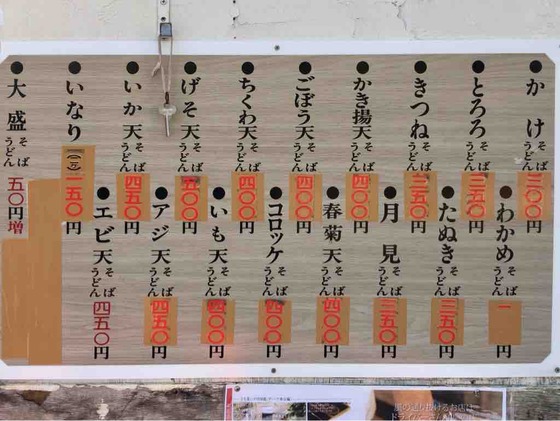 かけ そば うどん 三〇〇円
わかめ そば うどん 一 円
とろろ そば うどん 三五〇円
たぬき そば うどん 三五〇円
きつね そば うどん 三五〇円
月見 そば うどん 三五〇円
かき揚天 そば うどん 四〇〇円
春菊天 そば うどん 四〇〇円
ごぼう天 そば うどん 四〇〇円
コロッケ そば うどん 四〇〇円
ちくわ天 そば うどん 四〇〇円
いも天 そば うどん 四〇〇円
げそ天 そば うどん 五〇〇円
アジ天 そば うどん 四五〇円
いか天 そば うどん 四五〇円
エビ天 そば うどん 四五〇円
いなり (二ヶ) 一五〇円
大盛 そば うどん 五〇円増
風の通り抜けるお店は